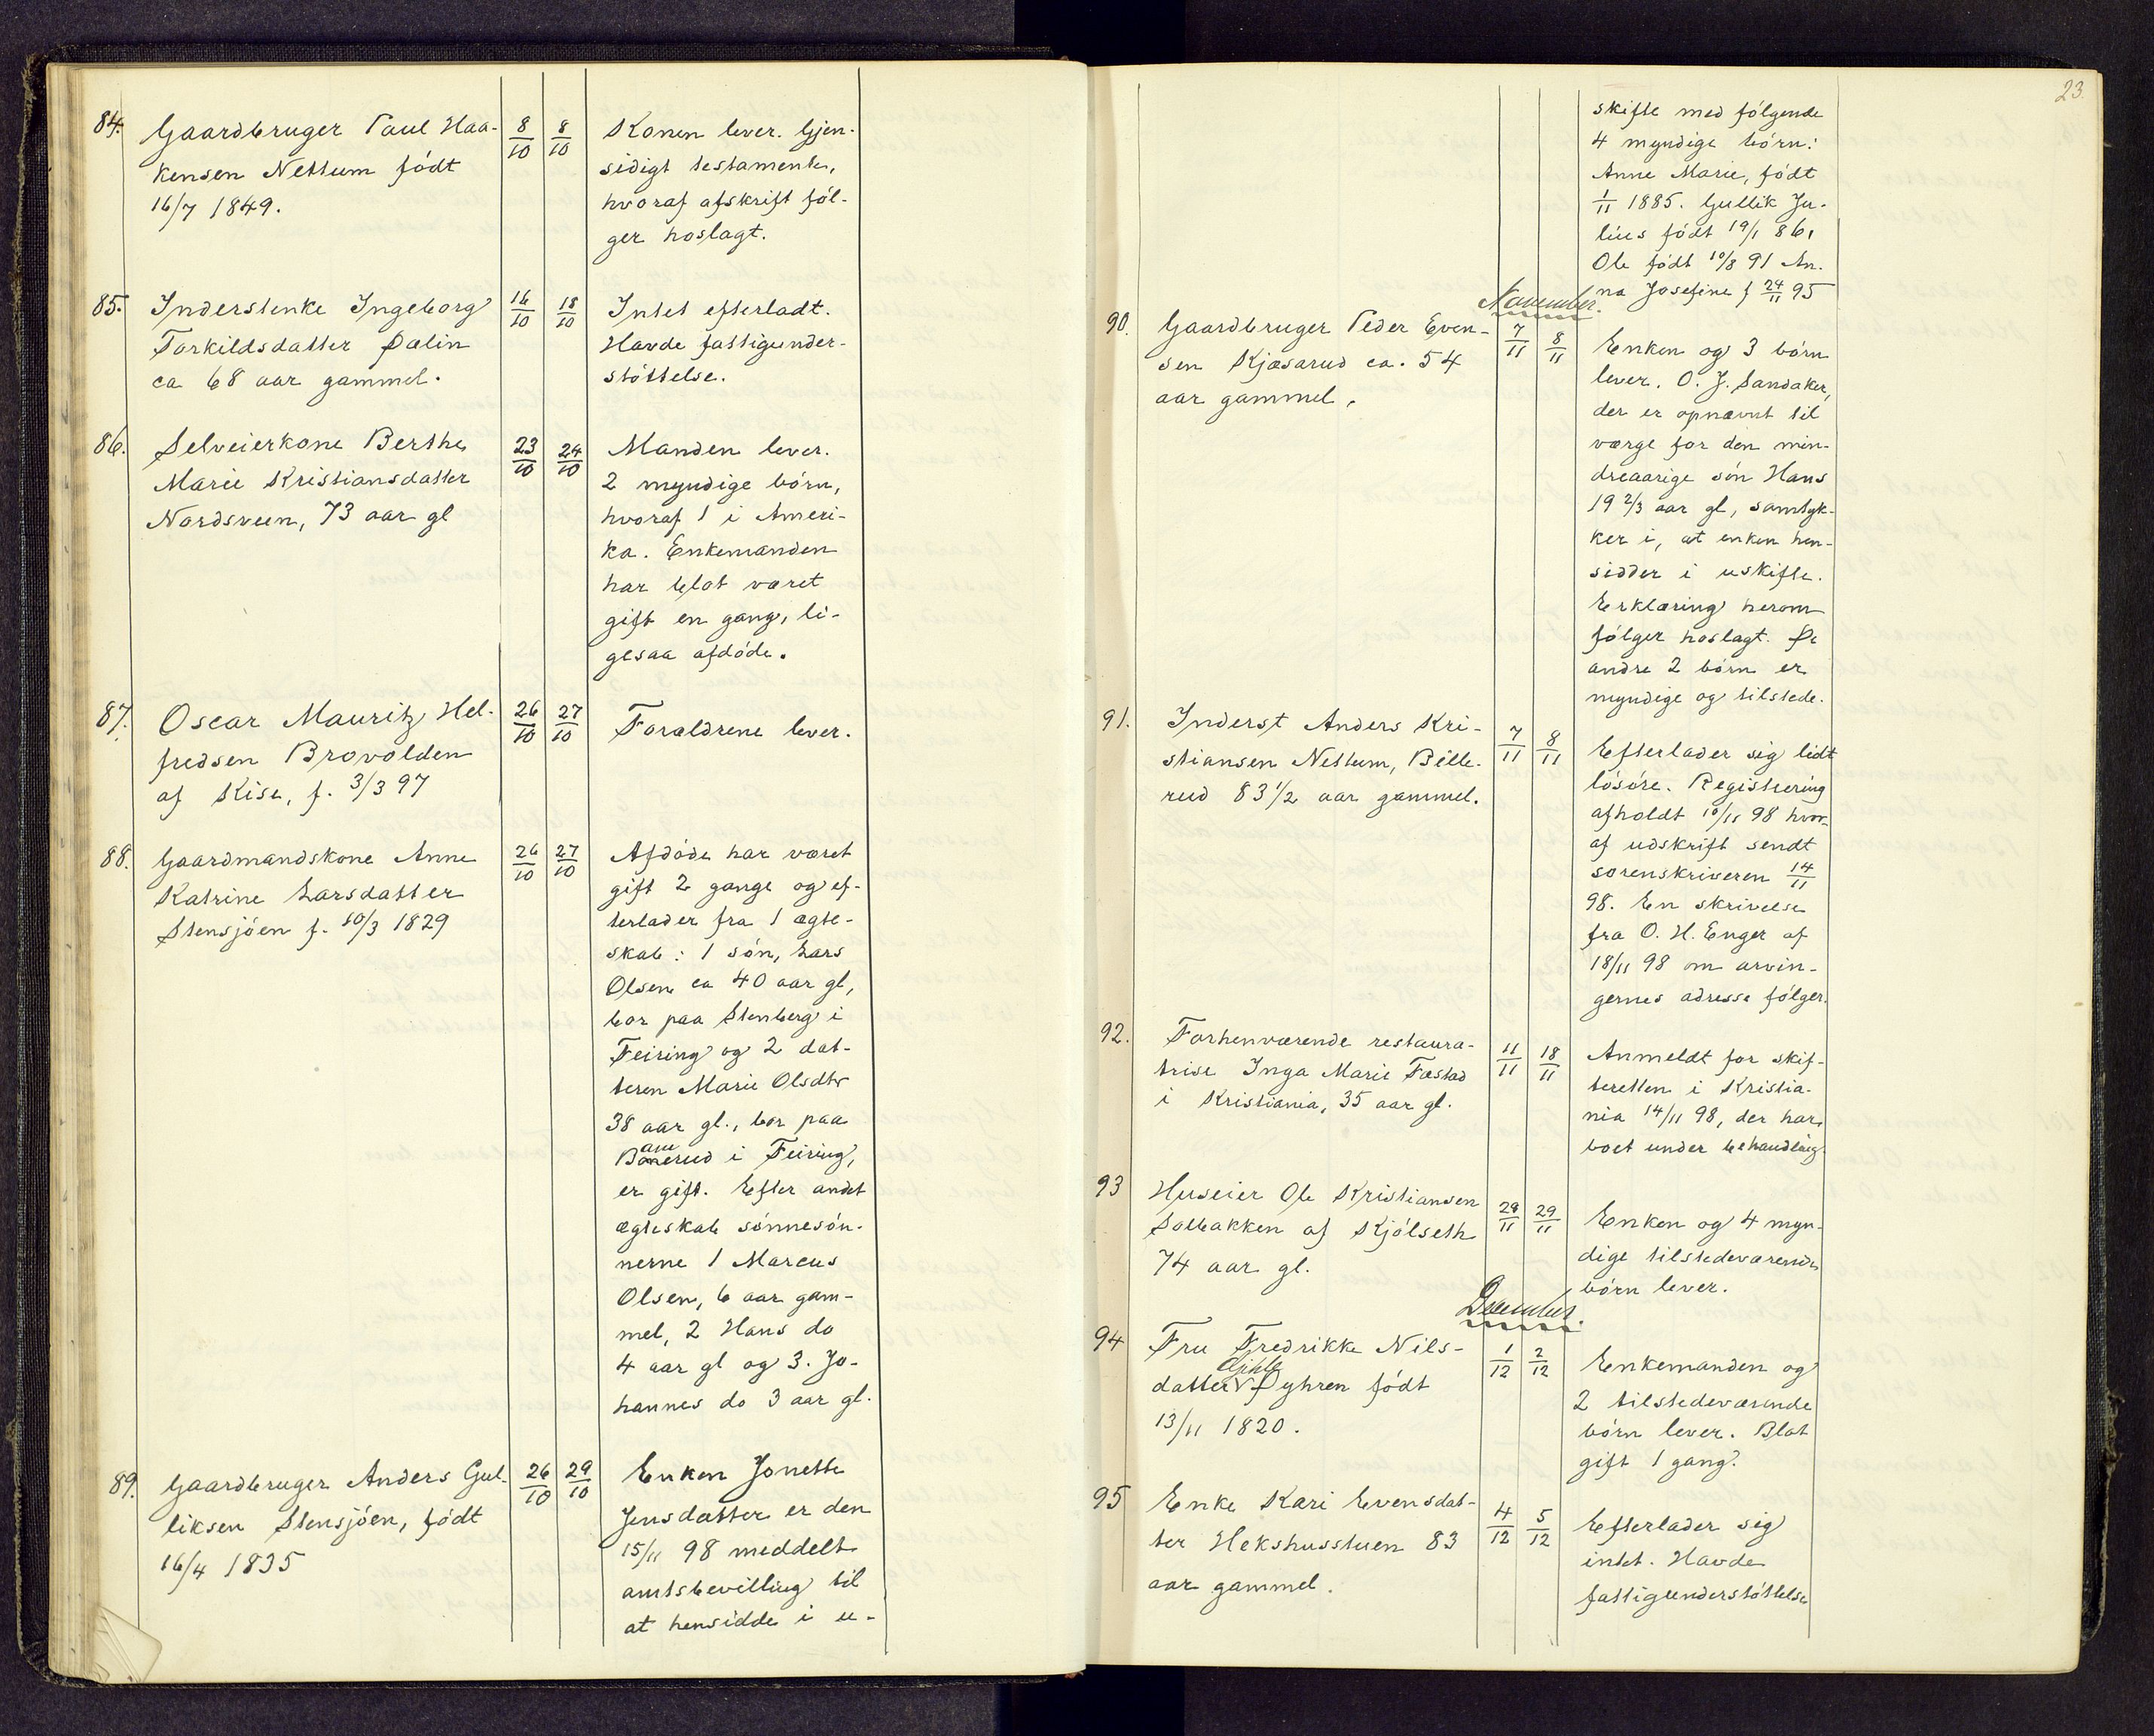 84. Gaardbruger Paul Haa-
kensen Nettum født
16/7 1849.
8/10 8/10
Konen lever. Gjen-
sidigt testamente,
hvoraf afskrift føl-
ger hoslagt.
85. Inderstenke Ingeborg
Torkildsdatter Dælin
ca 68 aar gammel.
16/10 18/10
Intet efterladt.
Havde fattigunder-
støttelse.
86. Selveierkone Berthe
Marie Kristiansdatter
Nordsveen, 73 aar gl
23/10 24/10
Manden lever.
2 myndige børn,
hvoraf 1 i Ameri-
ka. Enkemanden
har blot været
gift en gang, li-
gesaa afdøde.
87. Oscar Mauritz Hel-
fredsen Brovolden
af Kise, f. 3/3 97
26/10 27/10
Forældrene lever.
88. Gaardmandskone Anne
Katrine Larsdatter
Stensjøen f. 10/3 1829
26/10 27/10
Afdøde har været
gift 2 gange og ef-
terlader fra 1 ægte-
skab: 1 søn, Lars
Olsen ca 40 aar gl,
bor paa Stenberg i
Feiring og 2 dat-
teren Marie Olsdtr
38 aar gl., bor paa
i Feiring,
er gift. Efter andet
ægteskab sønnesøn-
nerne 1 Marcus
Olsen, 6 aar gam-
mel, 2 Hans do
4 aar gl og 3. Jo-
hannes do 3 aar gl.
89. Gaardbruger Anders Gul-
liksen Stensjøen, født
16/4 1835
26/10 29/10
Enken Jonette
Jensdatter er den
15/11 98 meddelt
amtsbevilling til
at hensidde i u-
23.
skifte med følgende
4 myndige børn:
Anne Marie, født
1/11 1885. Gullik Ju-
lius født 19/1 86,
Ole født 10/8 91 An-
na Josefine f 24/11 95
November.
90. Gaardbruger Peder Even-
sen Kjæsarud ca. 54
aar gammel.
7/11 8/11
Enken og 3 børn
lever. O. J. Sandaker,
der er opnævnt til
værge for den min-
dreaarige søn Hans
19 2/3 aar gl, samtyk-
ker i, at enken hen-
sidder i uskifte.
Erklæring herom
følger hoslagt. De
andre 2 børn er
myndige og tilstede.
91. Inderst Anders Kri-
stiansen Nettum, Bille-
rud 83 1/2 aar gammel.
7/11 8/11
Efterlader sig lidt
løsøre. Registrering
afholdt 10/11 98 hvor-
af udskrift sendt
sorenskriveren 14/11
98. En skrivelse
fra O. H. Enger af
18/11 98 om arvin-
gernes adresse følger.
92. Forhenværende restaura-
trise Inga Marie Fæstad
i Kristiania, 35 aar gl.
11/11 18/11
Anmeldt for skif-
teretten i Kristia-
nia 14/11 98, der har
boet under behandling.
93 Huseier Ole Kristiansen
Solbakken af Kjølseth
74 aar gl.
29/11 29/11
Enken og 4 myn-
dige tilstedeværende
børn lever.
December.
94 Fru Fredrikke Nils-
datter Dyhren født
13/11 1820.
1/12 2/12
Enkemanden og
2 tilstedeværende
børn lever. Blot
gift 1 gang.
95 Enke Kari Evensdat-
ter Hekshusstuen 83
aar gammel.
4/12 5/12
Efterlader sig
intet. Havde
fattigunderstøttelse